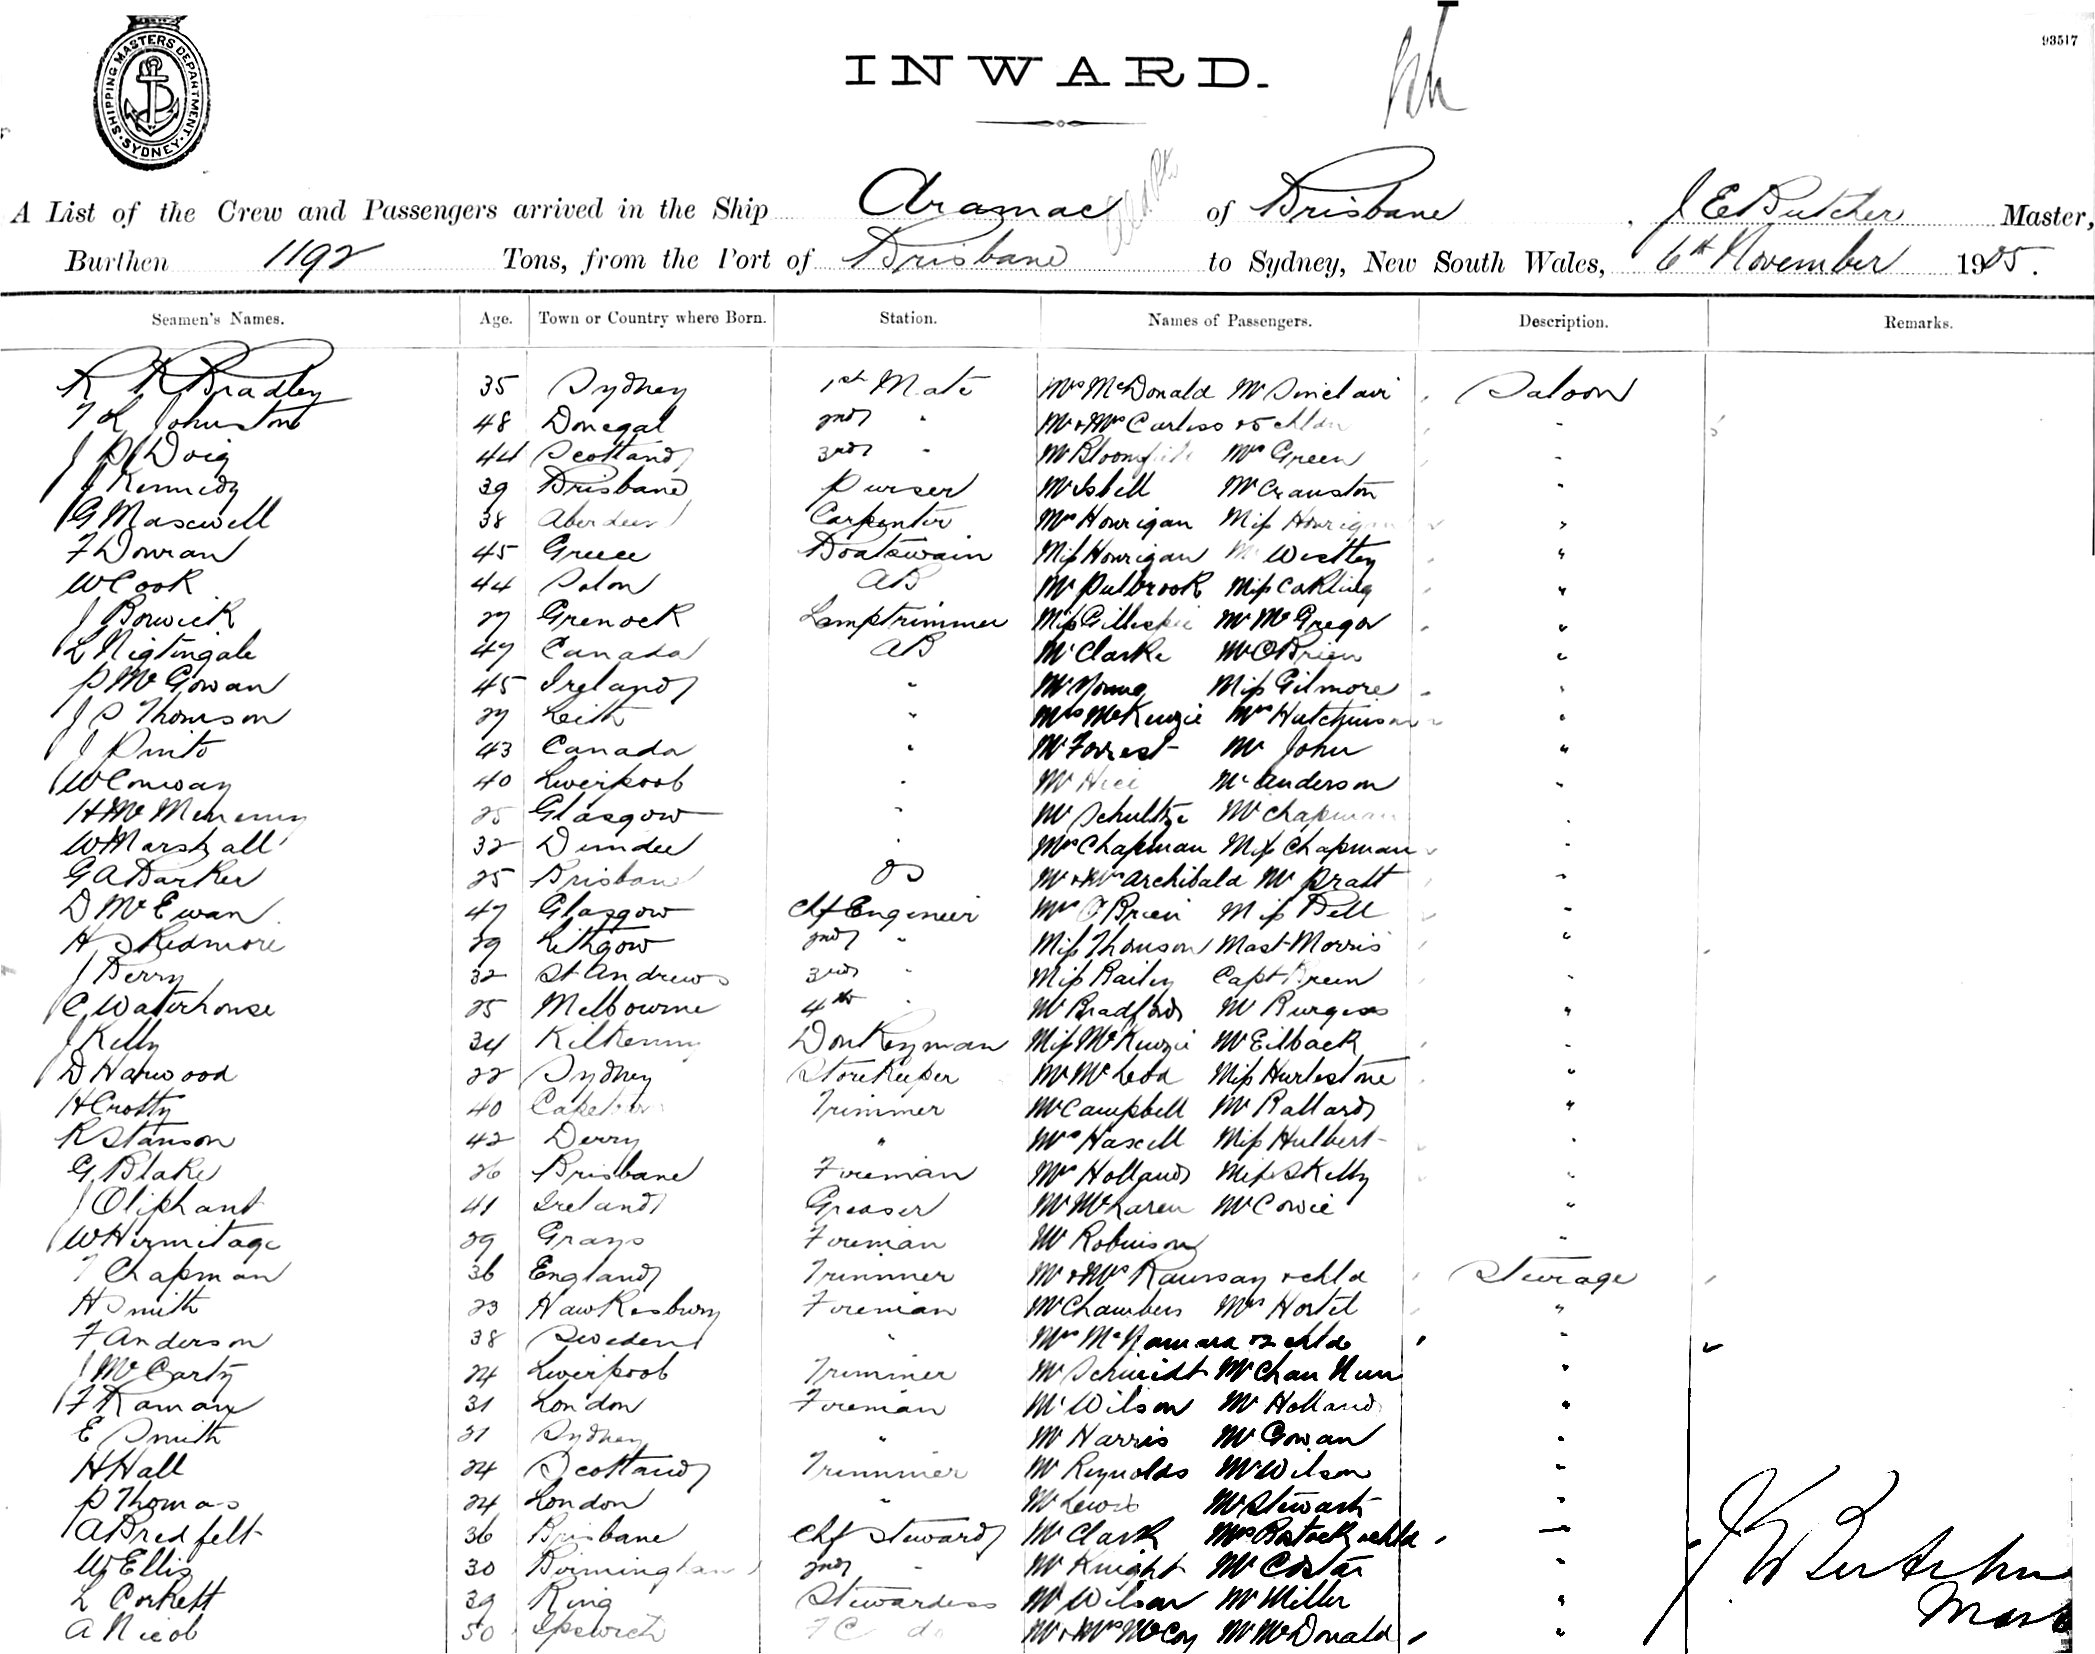 SHIPPING MASTERS DEPARTMENT. SYDNEY.
93517
INWARD.
A List of the Crew and Passengers arrived in the Ship Aramac of Brisbane, J E Butcher Master,
Burthen 1192 Tons, from the Port of Brisbane to Sydney, New South Wales, 6th November 1905.
Seamen's Names. Age. Town or Country where Born. Station. Names of Passengers. Description. Remarks.
R R Bradley 35 Sydney 1st Mate Mrs McDonald Mr Sinclair Saloon
T L Johnston 48 Donegal 2nd " Mr & Mrs Carliss & 5 chldn "
J P Doig 44 Scotland 3rd " Mr Bloomfield Mrs Green "
J Kennedy 39 Brisbane Purser Mr Isbell Mr Cranston "
G Maxwell 38 Aberdeen Carpenter Mrs Hourigan Miss Hourigan "
F Douran 45 Greece Boatswain Miss Hourigan Mr Westley "
W Cook 44 AB Mr Pulbrook Miss Carling "
J Borwick 27 Grenock Lamptrimmer Miss Gillespie Mr McGregor "
L Nigtingale 47 Canada AB Mr Clarke Mr O'Brien "
P McGowan 45 Ireland " Mr Young Miss Gilmore "
J S Thomson 27 Leith " Mrs McKenzie Mrs Hutchinson "
J Pinto 43 Canada " Mr Forrest Mr John "
W Conway 40 Liverpool " Mr Mr Anderson "
H McMenemy 25 Glasgow " Mr Schultze Mr Chapman "
W Marshall 32 Dundee " Mrs Chapman Miss Chapman "
G A Barker 25 Brisbane OS Mr & Mrs Archibald Mr Pratt "
D McEwan 47 Glasgow Chf Engineer Mrs O'Brien Miss Bell "
H Skedmore 29 Lithgow 2nd " Miss Thomson Mast Morris "
J Berry 32 St Andrews 3rd " Miss Bailey Capt Breen "
C Waterhouse 25 Melbourne 4th " Mr Bradford Mr Burgess "
J Kelly 34 Kilkenny Donkeyman Miss McKenzie Mr Eilback "
D Harwood 22 Sydney Storekeeper Mr McLeod Miss Hurlestone "
H Crotty 40 Trimmer Mr Campbell Mr Ballard "
R Stanson 42 Derry " Mrs Haxell Miss Hulbert "
G Blake 26 Brisbane Foreman Mrs Holland Miss Skelly "
J Oliphant 41 Ireland Greaser Mr McLaren Mr Cowie "
W Hermitage 29 Grays Foreman Mr Robinson "
T Chapman 36 England Trimmer Mr & Mrs Ramsay & chld Steerage
H Smith 23 Hawkesbury Foreman Mr Chambers Mrs Hortel "
F Anderson 38 Sweden " Mrs McNamara & 2 chld "
J McCarty 24 Liverpool Trimmer Mr Schmidt Mr Chan Hun "
F Raman 31 London Foreman Mr Wilson Mr Holland "
E Smith 31 Sydney " Mr Harris Mr Gowan "
H Hall 24 Scotland Trimmer Mr Reynolds Mr Wilson "
P Thomas 24 London " Mr Lewis Mr Stewart "
A Bredfelt 36 Brisbane Chf Steward Mr Clark Mrs Bostock & chld "
W Ellis 30 Birmingham 2nd " Mr Knight Mr Costa "
L Corkett 39 Ring Stewardess Mr Wilson Mr Miller "
A Nicol 50 Ipswich F C do Mr & Mrs McCoy Mr McDonald "
J E Butcher
Mast